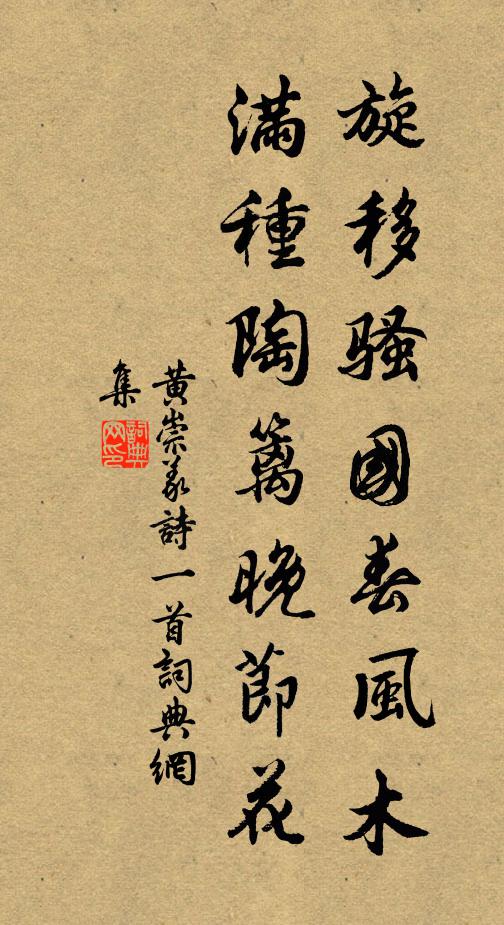 旋移騷國春風木
滿種陶籬晚節花
黃崇義詩一首詞典網
集
詞典網印